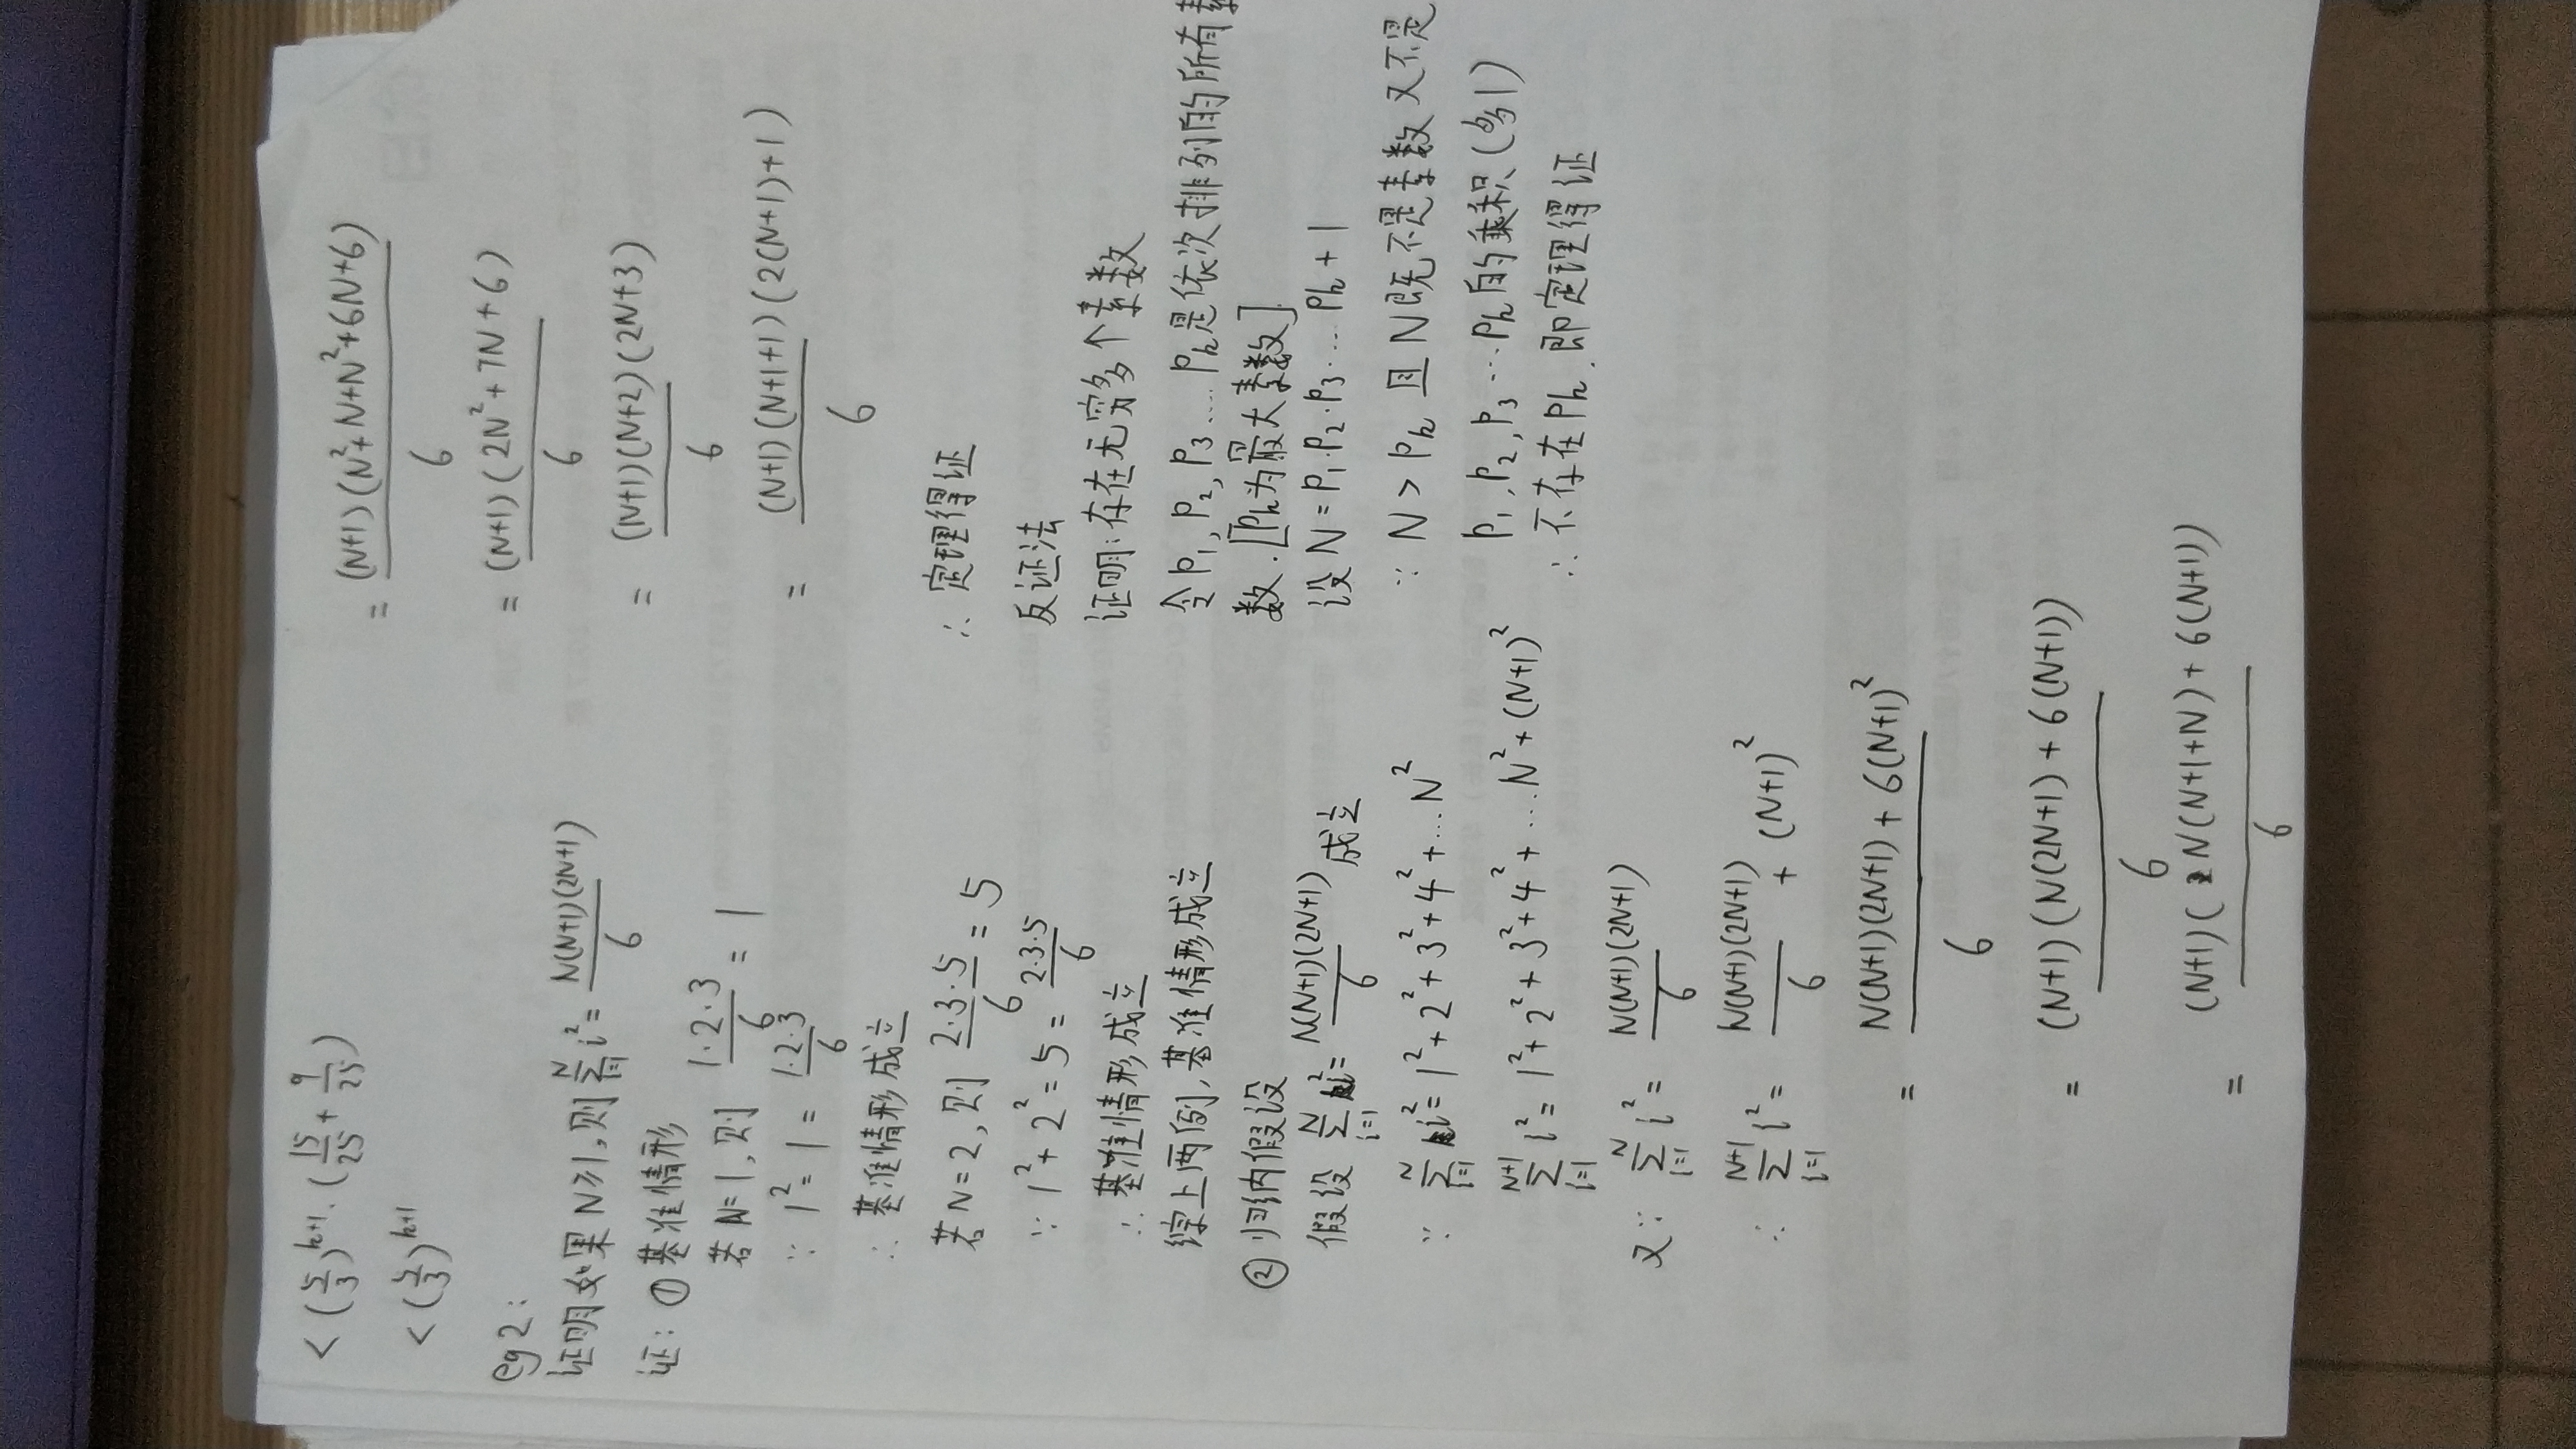 < (5/3)^(k+1) · (15/25 + 9/25)
< (5/3)^(k+1)
eg2:
证明如果 N≥1, 则 ∑_{i=1}^{N} i² = N(N+1)(2N+1)/6
证: ① 基准情形
若 N=1, 则 1·2·3/6 = 1
∵ 1² = 1 = 1·2·3/6
∴ 基准情形成立
若 N=2, 则 2·3·5/6 = 5
∵ 1²+2² = 5 = 2·3·5/6
∴ 基准情形成立
综上两例, 基准情形成立
② 归纳假设
假设 ∑_{i=1}^{N} i² = N(N+1)(2N+1)/6 成立
∵ ∑_{i=1}^{N} i² = 1²+2²+3²+4²+...N²
∑_{i=1}^{N+1} i² = 1²+2²+3²+4²+...N²+(N+1)²
又∵ ∑_{i=1}^{N} i² = N(N+1)(2N+1)/6
∴ ∑_{i=1}^{N+1} i² = N(N+1)(2N+1)/6 + (N+1)²
= (N(N+1)(2N+1)+6(N+1)²)/6
= (N+1)(N(2N+1)+6(N+1))/6
= (N+1)(N(N+1+N)+6(N+1))/6
= (N+1)(N²+N+N²+6N+6)/6
= (N+1)(2N²+7N+6)/6
= (N+1)(N+2)(2N+3)/6
= (N+1)(N+1+1)(2(N+1)+1)/6
∴ 定理得证
反证法
证明: 存在无穷多个素数
令 P₁, P₂, P₃ .... Pₖ是依次排列的所有素
数. [Pₖ为最大素数]
设 N = P₁·P₂·P₃ ... Pₖ + 1
∵ N > Pₖ 且 N既不是素数又不是
P₁, P₂, P₃ ... Pₖ 的乘积 (多1)
∴ 不存在 Pₖ. 即定理得证